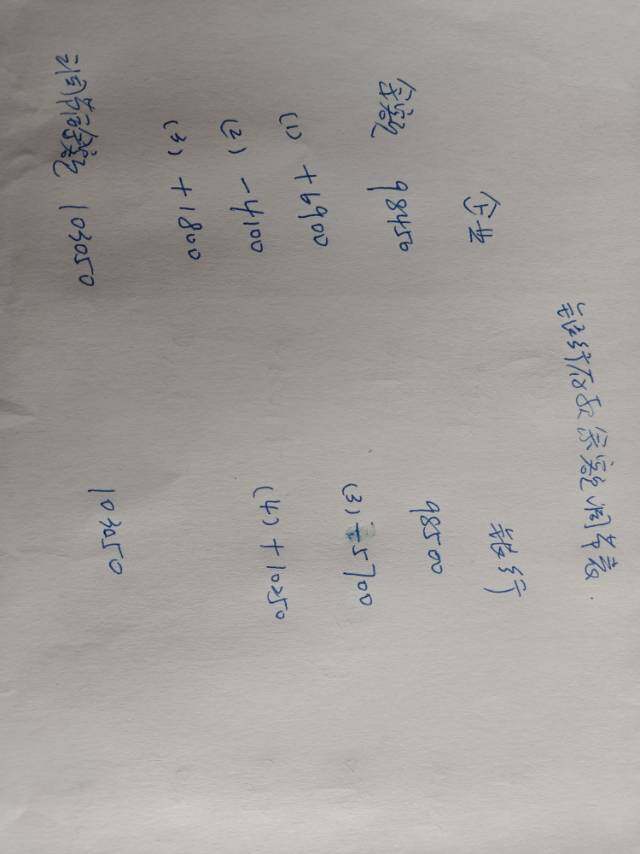 银行存款余额调节表.
企业 银行
余额 98450 98500
(1) +6900 (3) -5700
(2) -4100 (4) +10250
(3) +1800
调节后余额 103050 103050